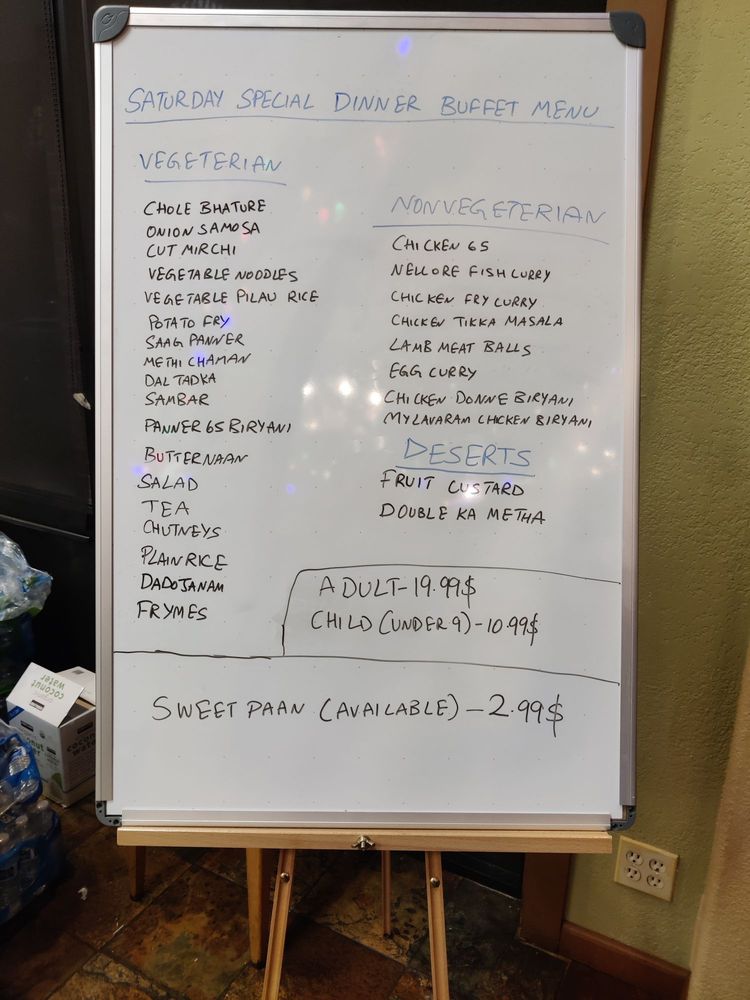 SATURDAY SPECIAL DINNER BUFFET MENU
VEGETERIAN
CHOLE BHATURE
ONION SAMOSA
CUT MIRCHI
VEGETABLE NOODLES
VEGETABLE PILAU RICE
POTATO FRY
SAAG PANNER
METHI CHAMAN
DAL TADKA
SAMBAR
PANNER 65 BIRYANI
BUTTERNAAN
SALAD
TEA
CHUTNEYS
PLAIN RICE
DADOJANAM
FRYMES
NONVEGETERIAN
CHICKEN 65
NELLORE FISH CURRY
CHICKEN FRY CURRY
CHICKEN TIKKA MASALA
LAMB MEAT BALLS
EGG CURRY
CHICKEN DONNE BIRYANI
MYLAVARAM CHICKEN BIRYANI
DESERTS
FRUIT CUSTARD
DOUBLE KA METHA
ADULT-19.99$
CHILD (UNDER 9)-10.99$
SWEET PAAN (AVAILABLE)-2.99$
coconut
water